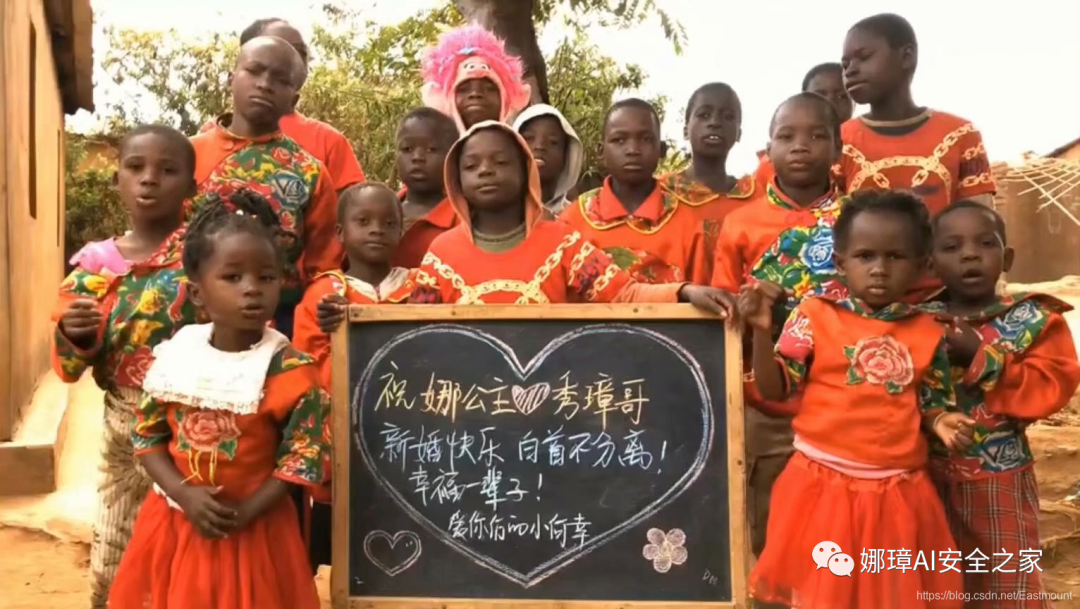 祝娜公主♡秀璋哥
新婚快乐 白首不分离!
幸福一辈子!
爱你们的小何幸
娜璋AI安全之家
https://blog.csdn.net/Eastmount